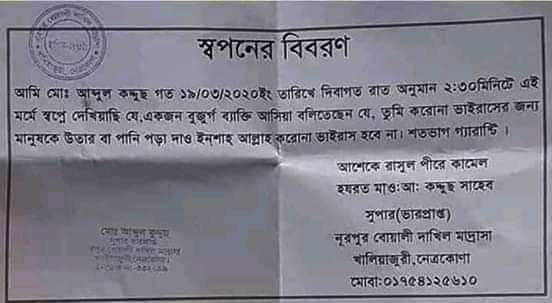 স্বপনের বিবরণ
আমি মোঃ আব্দুল কদ্দুছ গত ১৯/০৩/২০২০ইং তারিখে দিবাগত রাত অনুমান ২:৩০মিনিটে এই
মর্মে স্বপ্নে দেখিয়াছি যে,একজন বুজুর্গ ব্যাক্তি আসিয়া বলিতেছেন যে, তুমি করোনা ভাইরাসের জন্য
মানুষকে উতার বা পানি পড়া দাও ইনশাহ আল্লাহ করোনা ভাইরাস হবে না। শতভাগ গ্যারান্টি ।
আশেকে রাসুল পীরে কামেল
হযরত মাওঃআঃ কদ্দুছ সাহেব
সুপার(ভারপ্রাপ্ত)
নূরপুর বোয়ালী দাখিল মাদ্রাসা
খালিয়াজুরী,নেত্রকোণা
মোবাঃ০১৭৫৪১২৫৬১০
মোঃ আব্দুল কুদ্দুছ